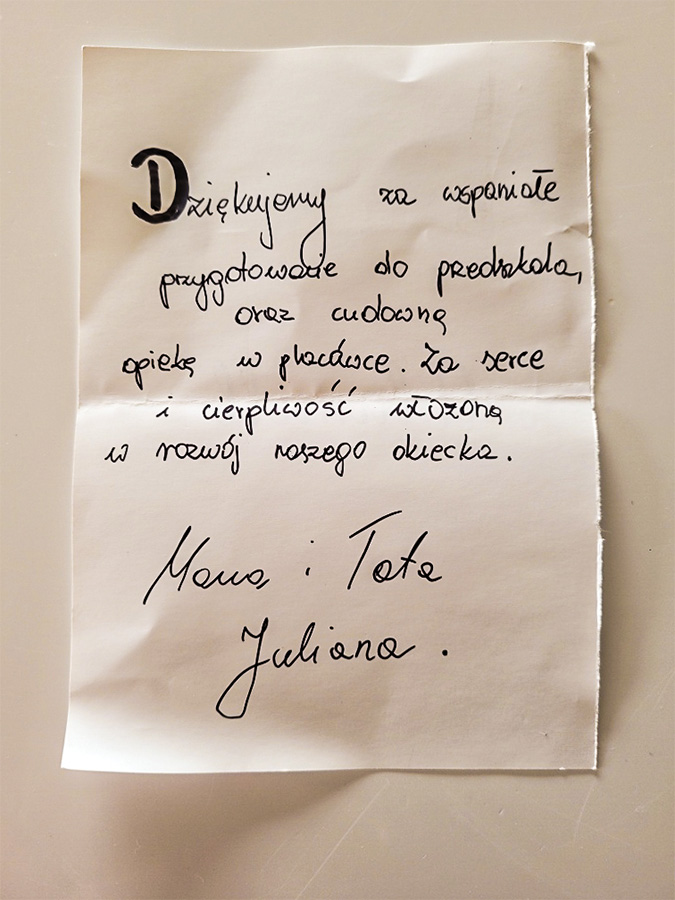 Dziękujemy za wspaniałe
przygotowanie do przedszkola,
oraz cudowną
opiekę w placówce. Za serce
i cierpliwość włożoną
w rozwój naszego dziecka.
Mama i Tata
Juliana.